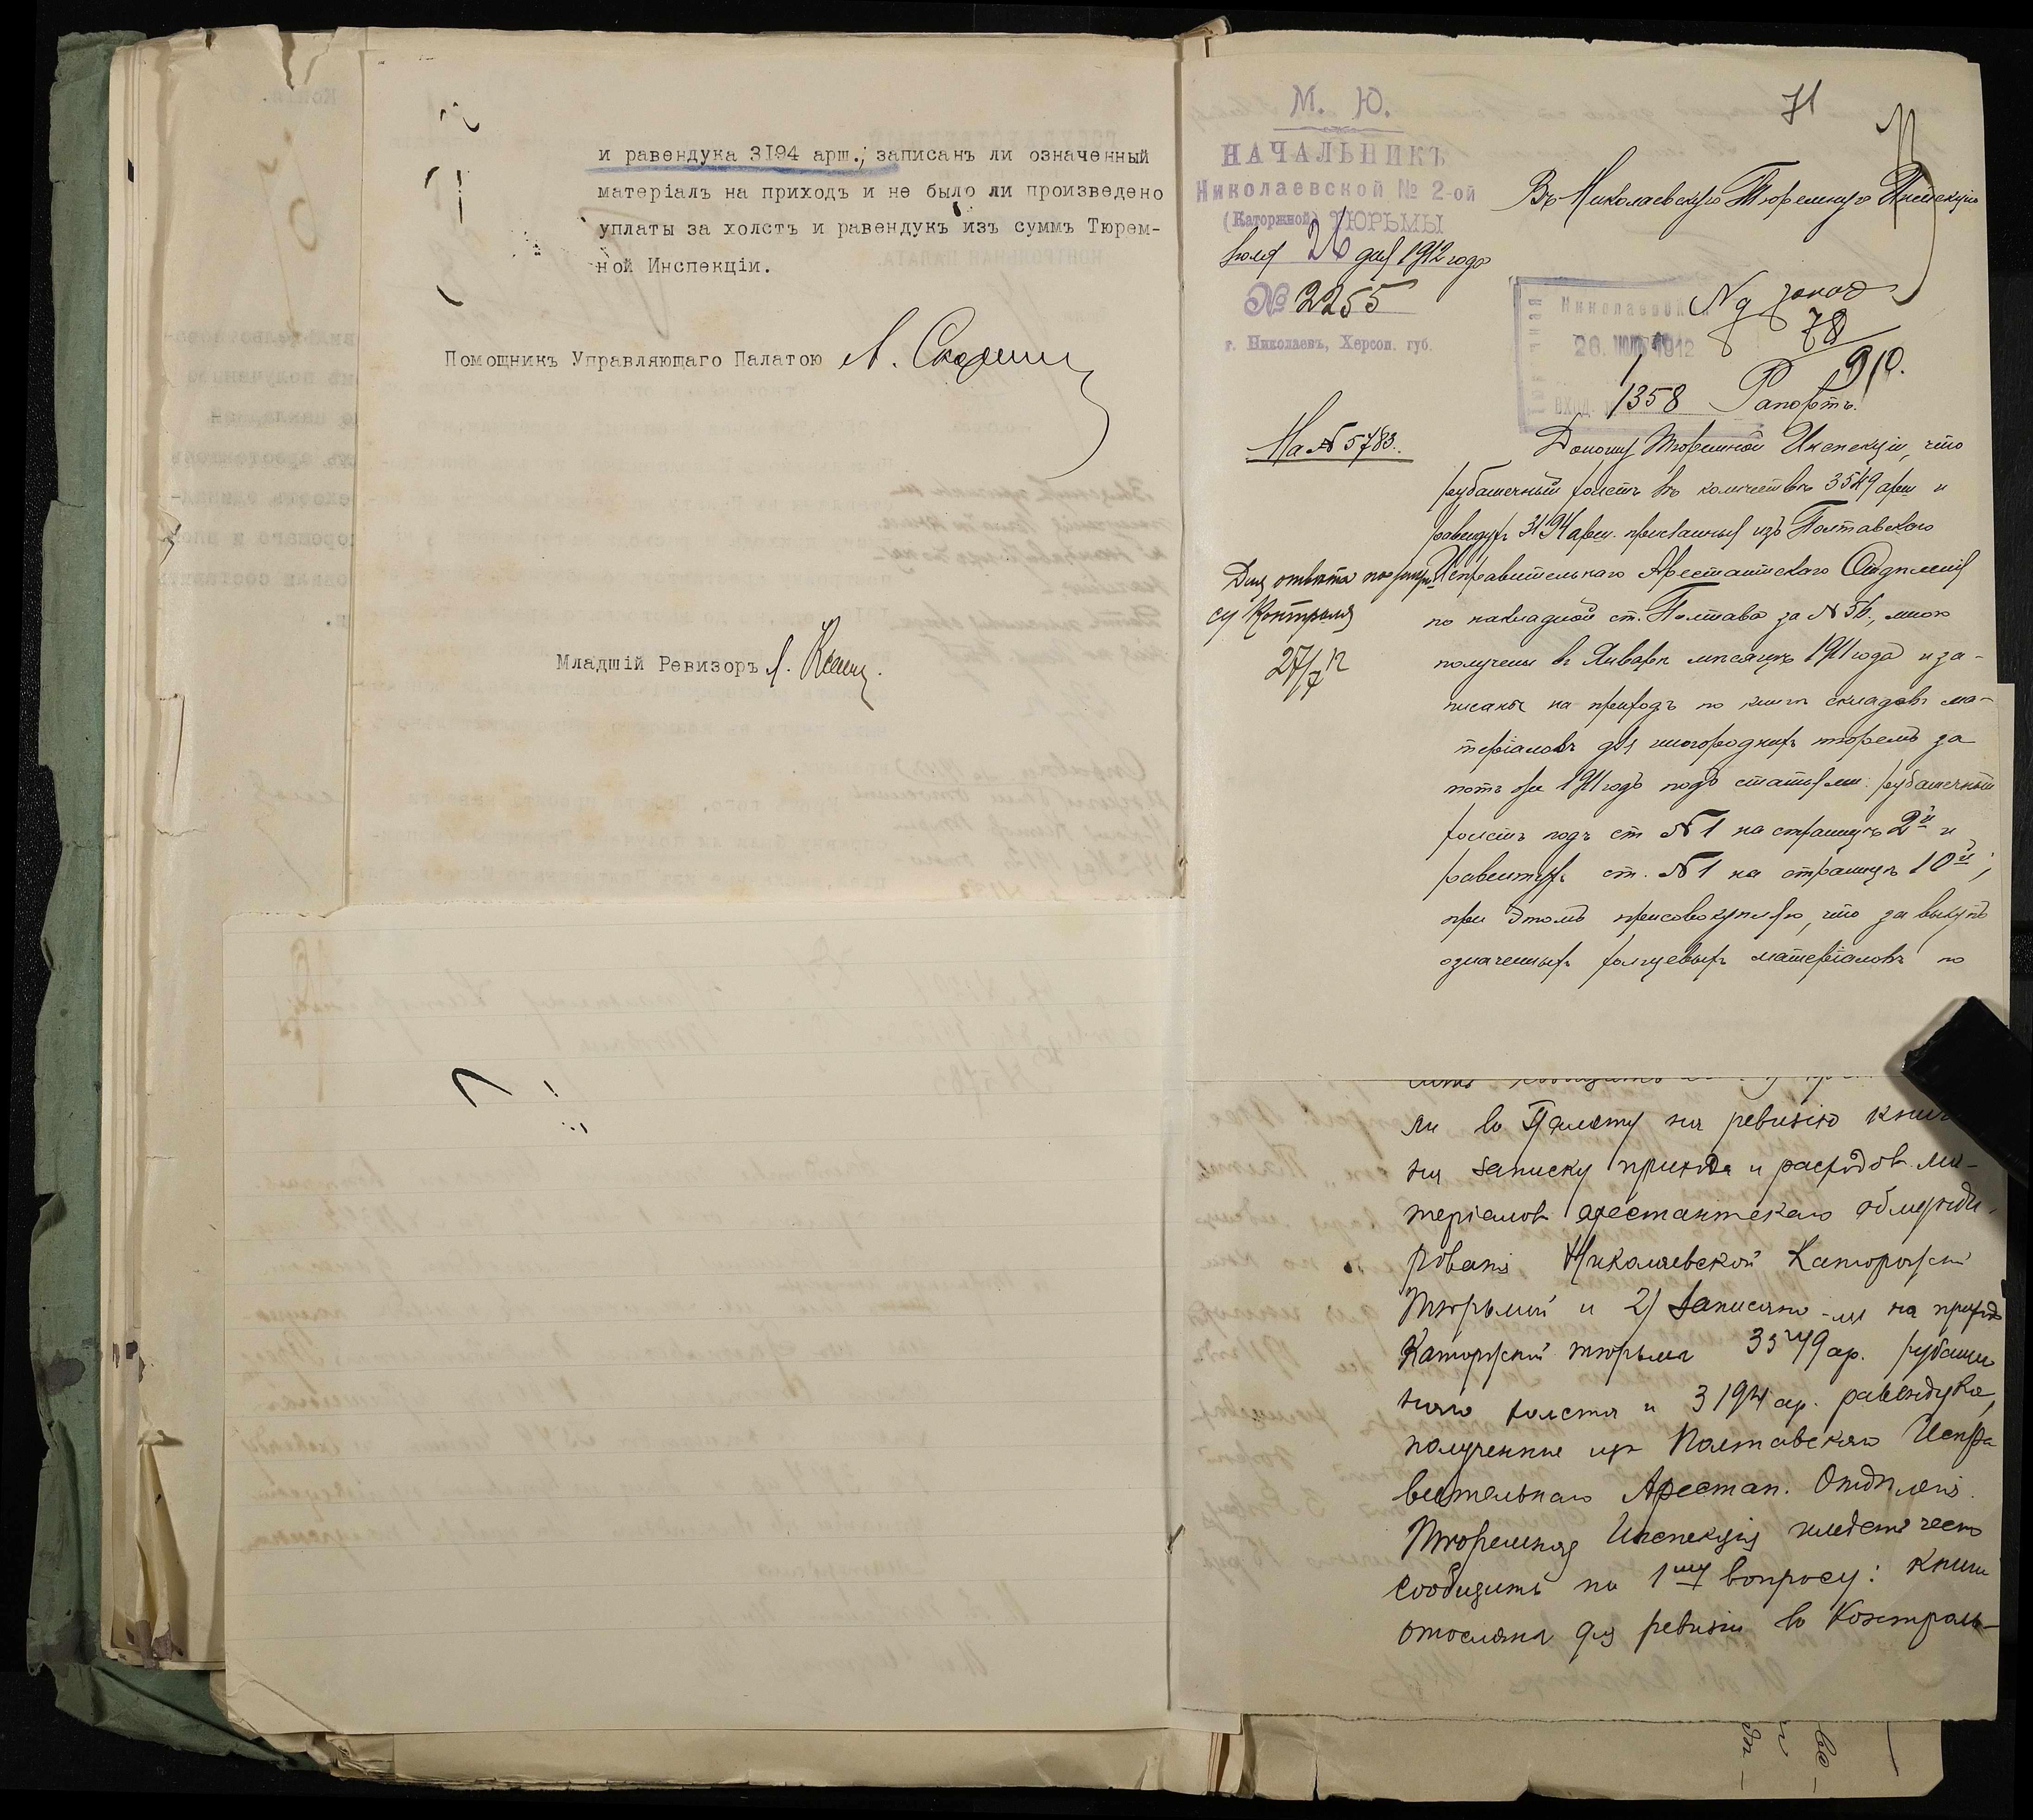 и равендука 3194 арш.; записанъ ли означенный
матеріалъ на приходъ и не было ли произведено
уплаты за холстъ и равендукъ изъ суммъ Тюрем-
ной Инспекціи.
Помощникъ Управляющаго Палатою
Младшій Ревизоръ
71
М. Ю.
НАЧАЛЬНИКЪ
Николаевской № 2-ой
(Каторжной) ТЮРЬМЫ
Іюля 26 дня 1912 года
№ 2255
г. Николаевъ, Херсон. губ.
Въ Николаевскую Тюремную Инспекцію
Николаевск
26. ІЮЛ 1912
ВХОД.
1358
78
910.
Рапортъ.
На № 5783.
Доношу Тюремной Инспекціи, что
рубашечный холстъ въ количествѣ 3549 арш и
равендукъ 3194 арш. присланныя изъ Полтавскаго
Исправительнаго Арестантскаго Отдѣленія
по накладной ст. Полтава за № 56, мною
получены въ Январѣ мѣсяцѣ 1911 года и за-
писаны на приходъ по книгѣ складовъ ма-
теріаловъ для иногороднихъ тюремъ за
тотъ же 1911 годъ подъ статьями: рубашечный
холстъ подъ ст № 1 на страницѣ 2й и
равендукъ ст. № 1 на страницѣ 10й;
при этомъ присовокупляю, что за выкупъ
означенныхъ холщевыхъ матеріаловъ по
Для отвѣта по запро-
су Контроля
27/7 12
ли въ Палату на ревизію книга
на записку прихода и расходов ма-
теріалов арестантскаго обмунди-
рованія Николаевской Каторжной
Тюрьмы и 2) записано-ли на приход
Каторжной тюрьмы 3549 ар. рубашеч
наго холста и 3194 ар. равендука,
полученные из Полтавскаго Испра
вительнаго Арестан. Отдѣленія.
Тюремная Инспекція имѣет честь
сообщить по 1му вопросу: книга
отослана для ревизіи въ Контроль-